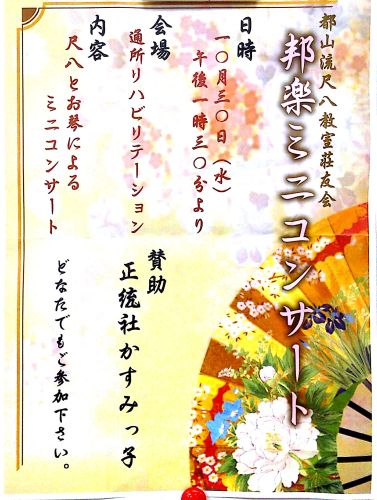 都山流尺八教室荘友会
邦楽ミニコンサート
日時
一〇月三〇日（水）
午後一時三〇分より
会場
通所リハビリテーション
内容
尺八とお琴による
ミニコンサート
賛助
正絃社かすみっ子
どなたでもご参加下さい。